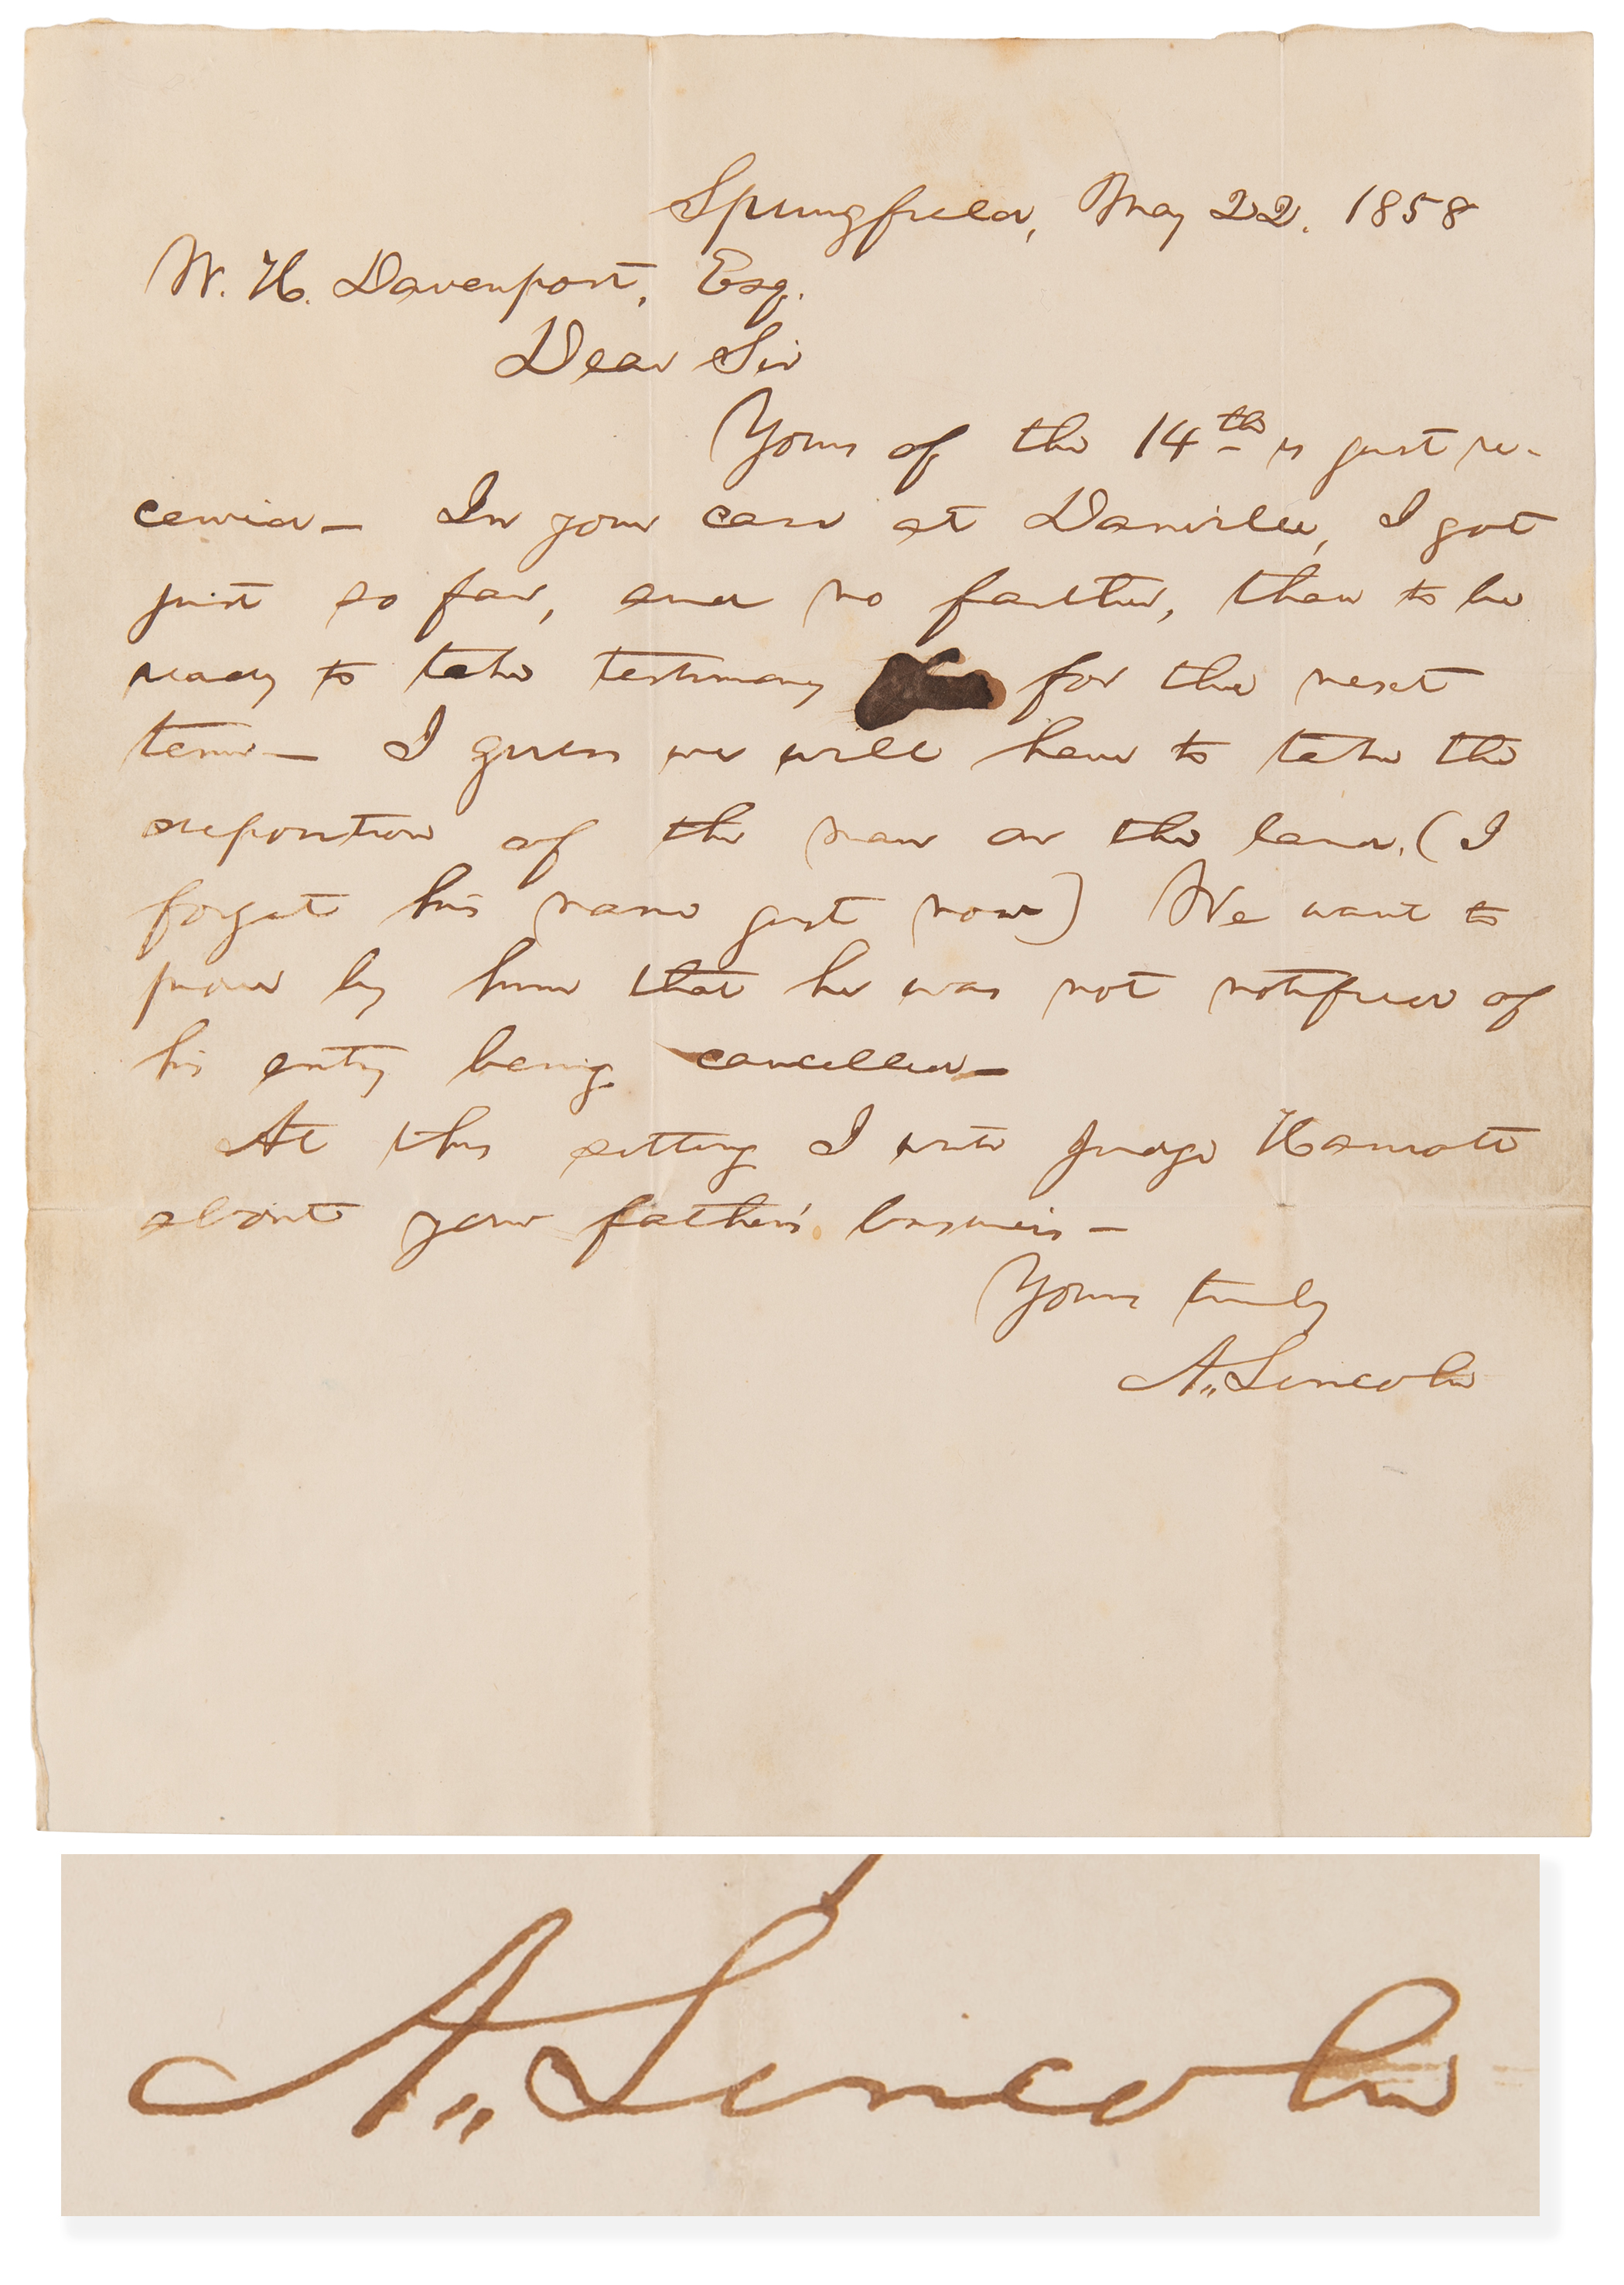 Springfield, May 22. 1858
W. H. Davenport, Esq.
Dear Sir
Yours of the 14th is just re-
ceived— In your case at Danville, I got
just so far, and no farther, than to be
ready to take testimony for the next
term— I guess we will have to take the
deposition of the man on the land. (I
forget his name just now) We want to
prove by him that he was not notified of
his entry being cancelled—
At this sitting I write Judge
about your father's business—
Yours truly
A. Lincoln
A. Lincoln